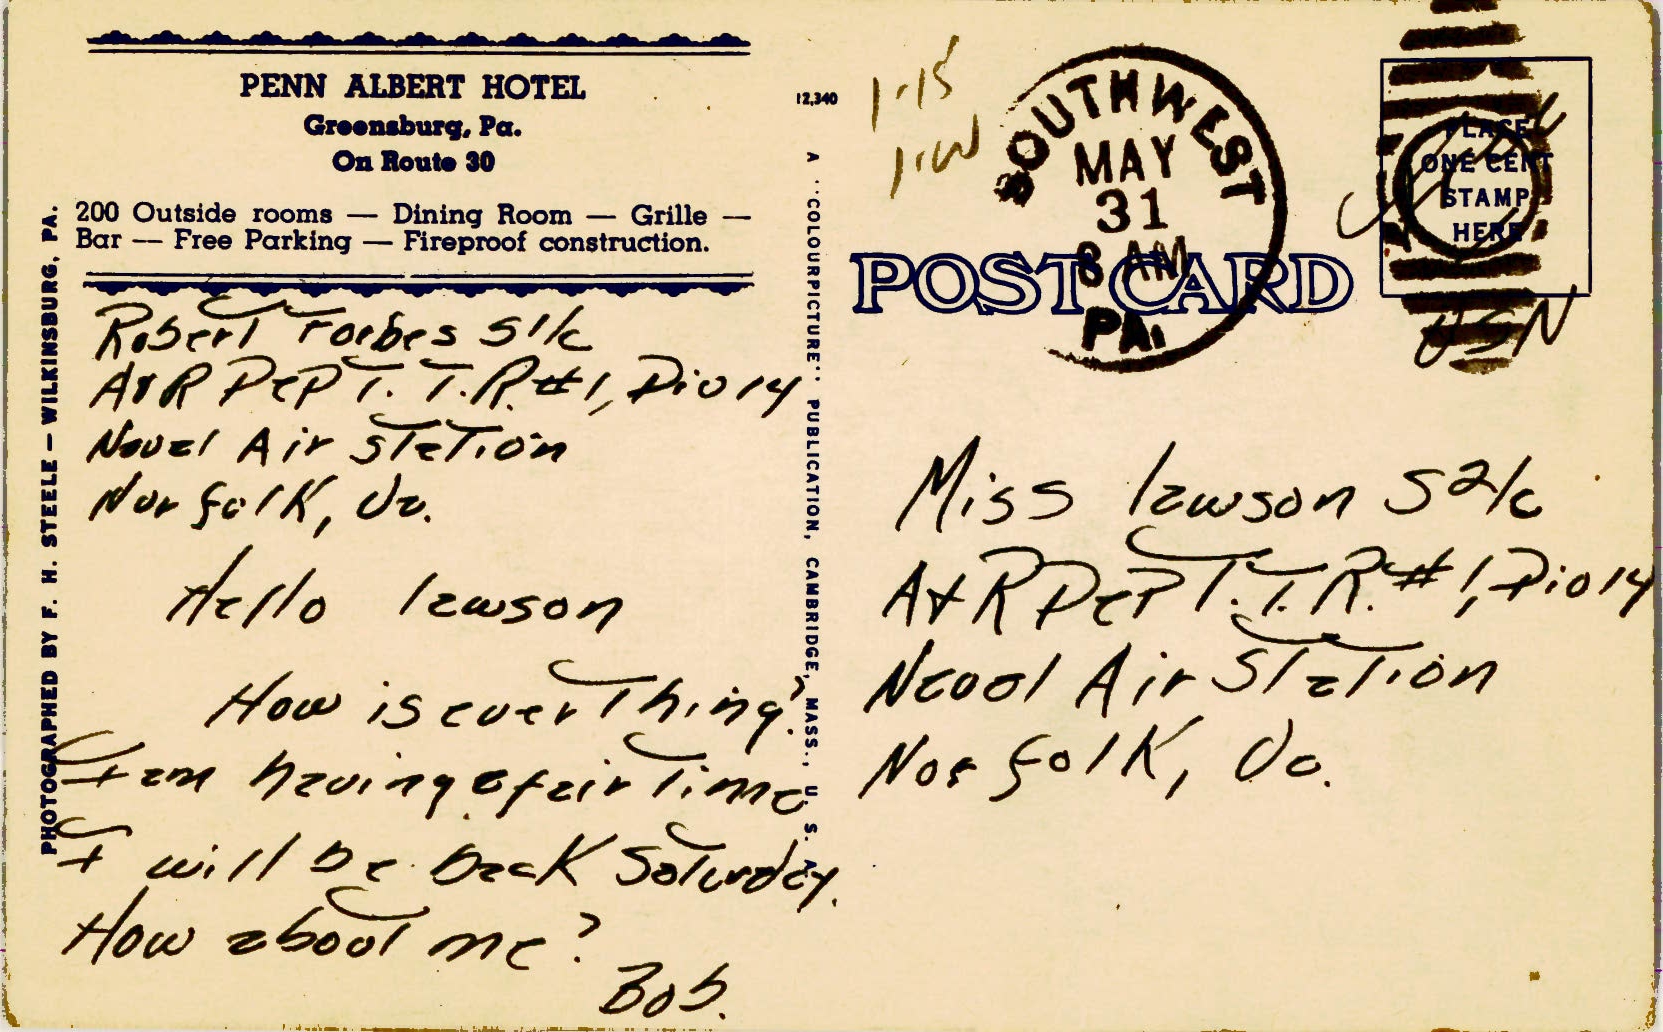 PENN ALBERT HOTEL
Greensburg, Pa.
On Route 30
200 Outside rooms — Dining Room — Grille —
Bar — Free Parking — Fireproof construction.
PHOTOGRAPHED BY F. H. STEELE — WILKINSBURG, PA.
Robert Forbes S1/c
A&R DEPT. T.R. #1, Div 14
Naval Air Station
Norfolk, Va.
Hello Lawson
How is ever Thing?
I am having a fair Time
I will be back Saturday.
How about me?
Bob.
12,340
A "COLOURPICTURE" PUBLICATION, CAMBRIDGE, MASS., U. S. A.
1-15
SOUTHWEST
MAY
31
8 AM
PA.
POST CARD
PLACE
ONE CENT
STAMP
HERE
USN
Miss Lawson S2/c
A&R DEPT. T.R. #1, Div 14
Naval Air Station
Norfolk, Va.